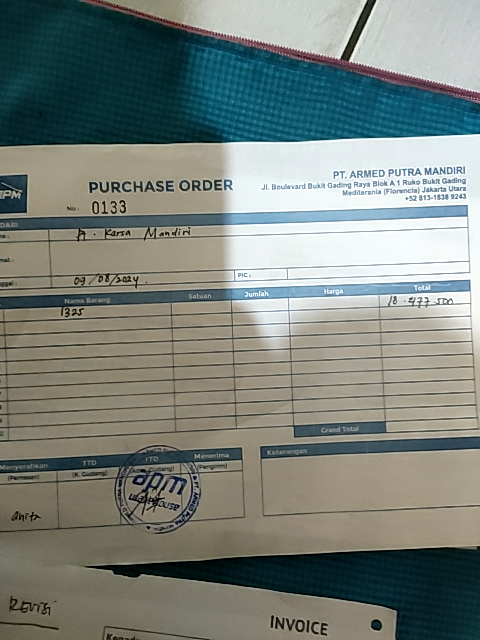 APM
PURCHASE ORDER
No: 0133
PT. ARMED PUTRA MANDIRI
Jl. Boulevard Bukit Gading Raya Blok A 1 Ruko Bukit Gading
Mediterania (Florencia) Jakarta Utara
+52 813-1838 9243
DARI
Karsa Mandiri
/08/2024.
PIC:
Nama Barang Satuan Jumlah Harga Total
1325 18.477.500
Grand Total
Menyerahkan TTD TTD Menerima
(Pemesan) (K. Gudang) (Gudang) (Pengirim)
Keterangan
anita
apm
warehouse
REVISI
INVOICE